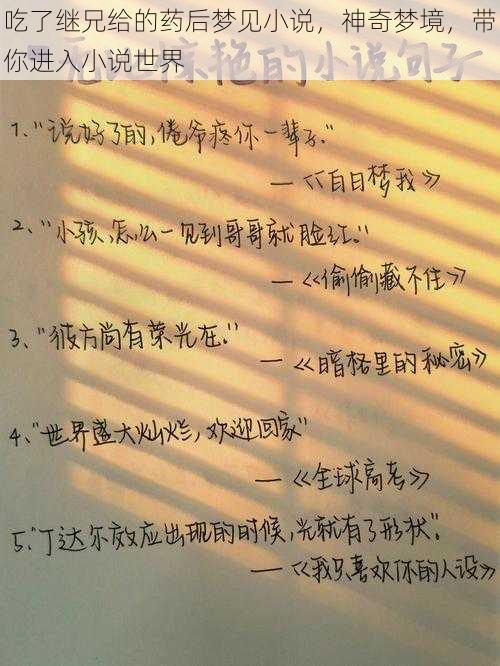 吃了继兄给的药后梦见小说，神奇梦境，带
你进入小说世界
惊艳的小说句子
1、"说好了的，倦爷疼你一辈子."
—《白日梦我》
2、"小孩,怎么一见到哥哥就脸红."
—《偷偷藏不住》
3、"彼方尚有荣光在."
—《暗格里的秘密》
4、"世界盛大灿烂，欢迎回家"
—《全球高考》
5、"丁达尔效应出现的时候，光就有了形状".
—《我只喜欢你的人设》